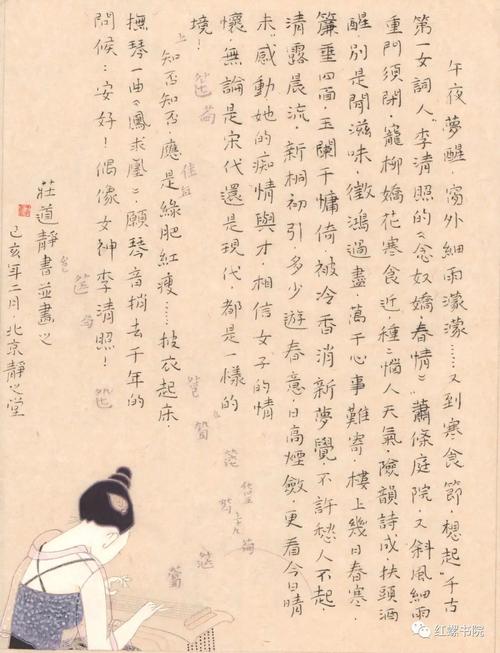 午夜夢醒，窗外細雨濛濛……又到寒食節，想起"千古
第一女詞人"李清照的《念奴嬌·春情》"蕭條庭院又斜風細雨
重門須閉·寵柳嬌花寒食近·種〻惱人天氣·險韻詩成·扶頭酒
醒·別是閒滋味·徵鴻過盡·萬千心事難寄·樓上幾日春寒·
簾垂四面·玉闌干慵倚被冷香消新夢覺·不許愁人不起·
清露晨流·新桐初引·多少遊春意日高煙斂更看今日晴
未"感動她的痴情與才·相信女子的情
懷·無論是宋代還是現代·都是一樣的
境！
知否知否·應是綠肥紅瘦……披衣起床
撫琴一曲《鳳求凰》·願琴音捎去千年的
問候：安好！偶像女神李清照！
莊道靜書並畫之
己亥年二月·北京靜之堂
红螺书院